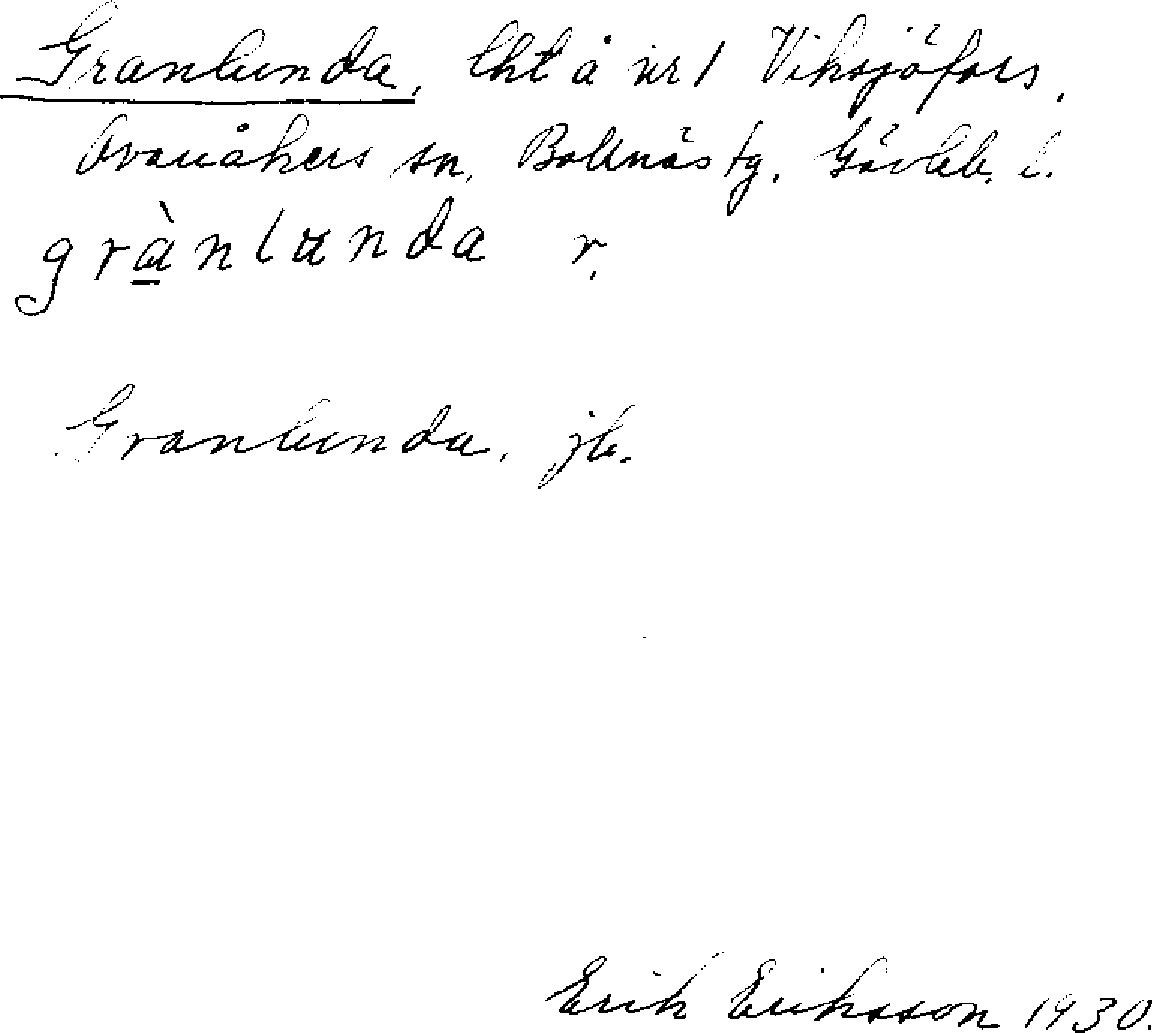 Granlunda, lht å nr 1 Viksjöfors,
Ovanåkers sn, Bollnäs tg. Gävleb. l.
grànlunda r.
Granlunda, jb.
Erik Eriksson 1930.